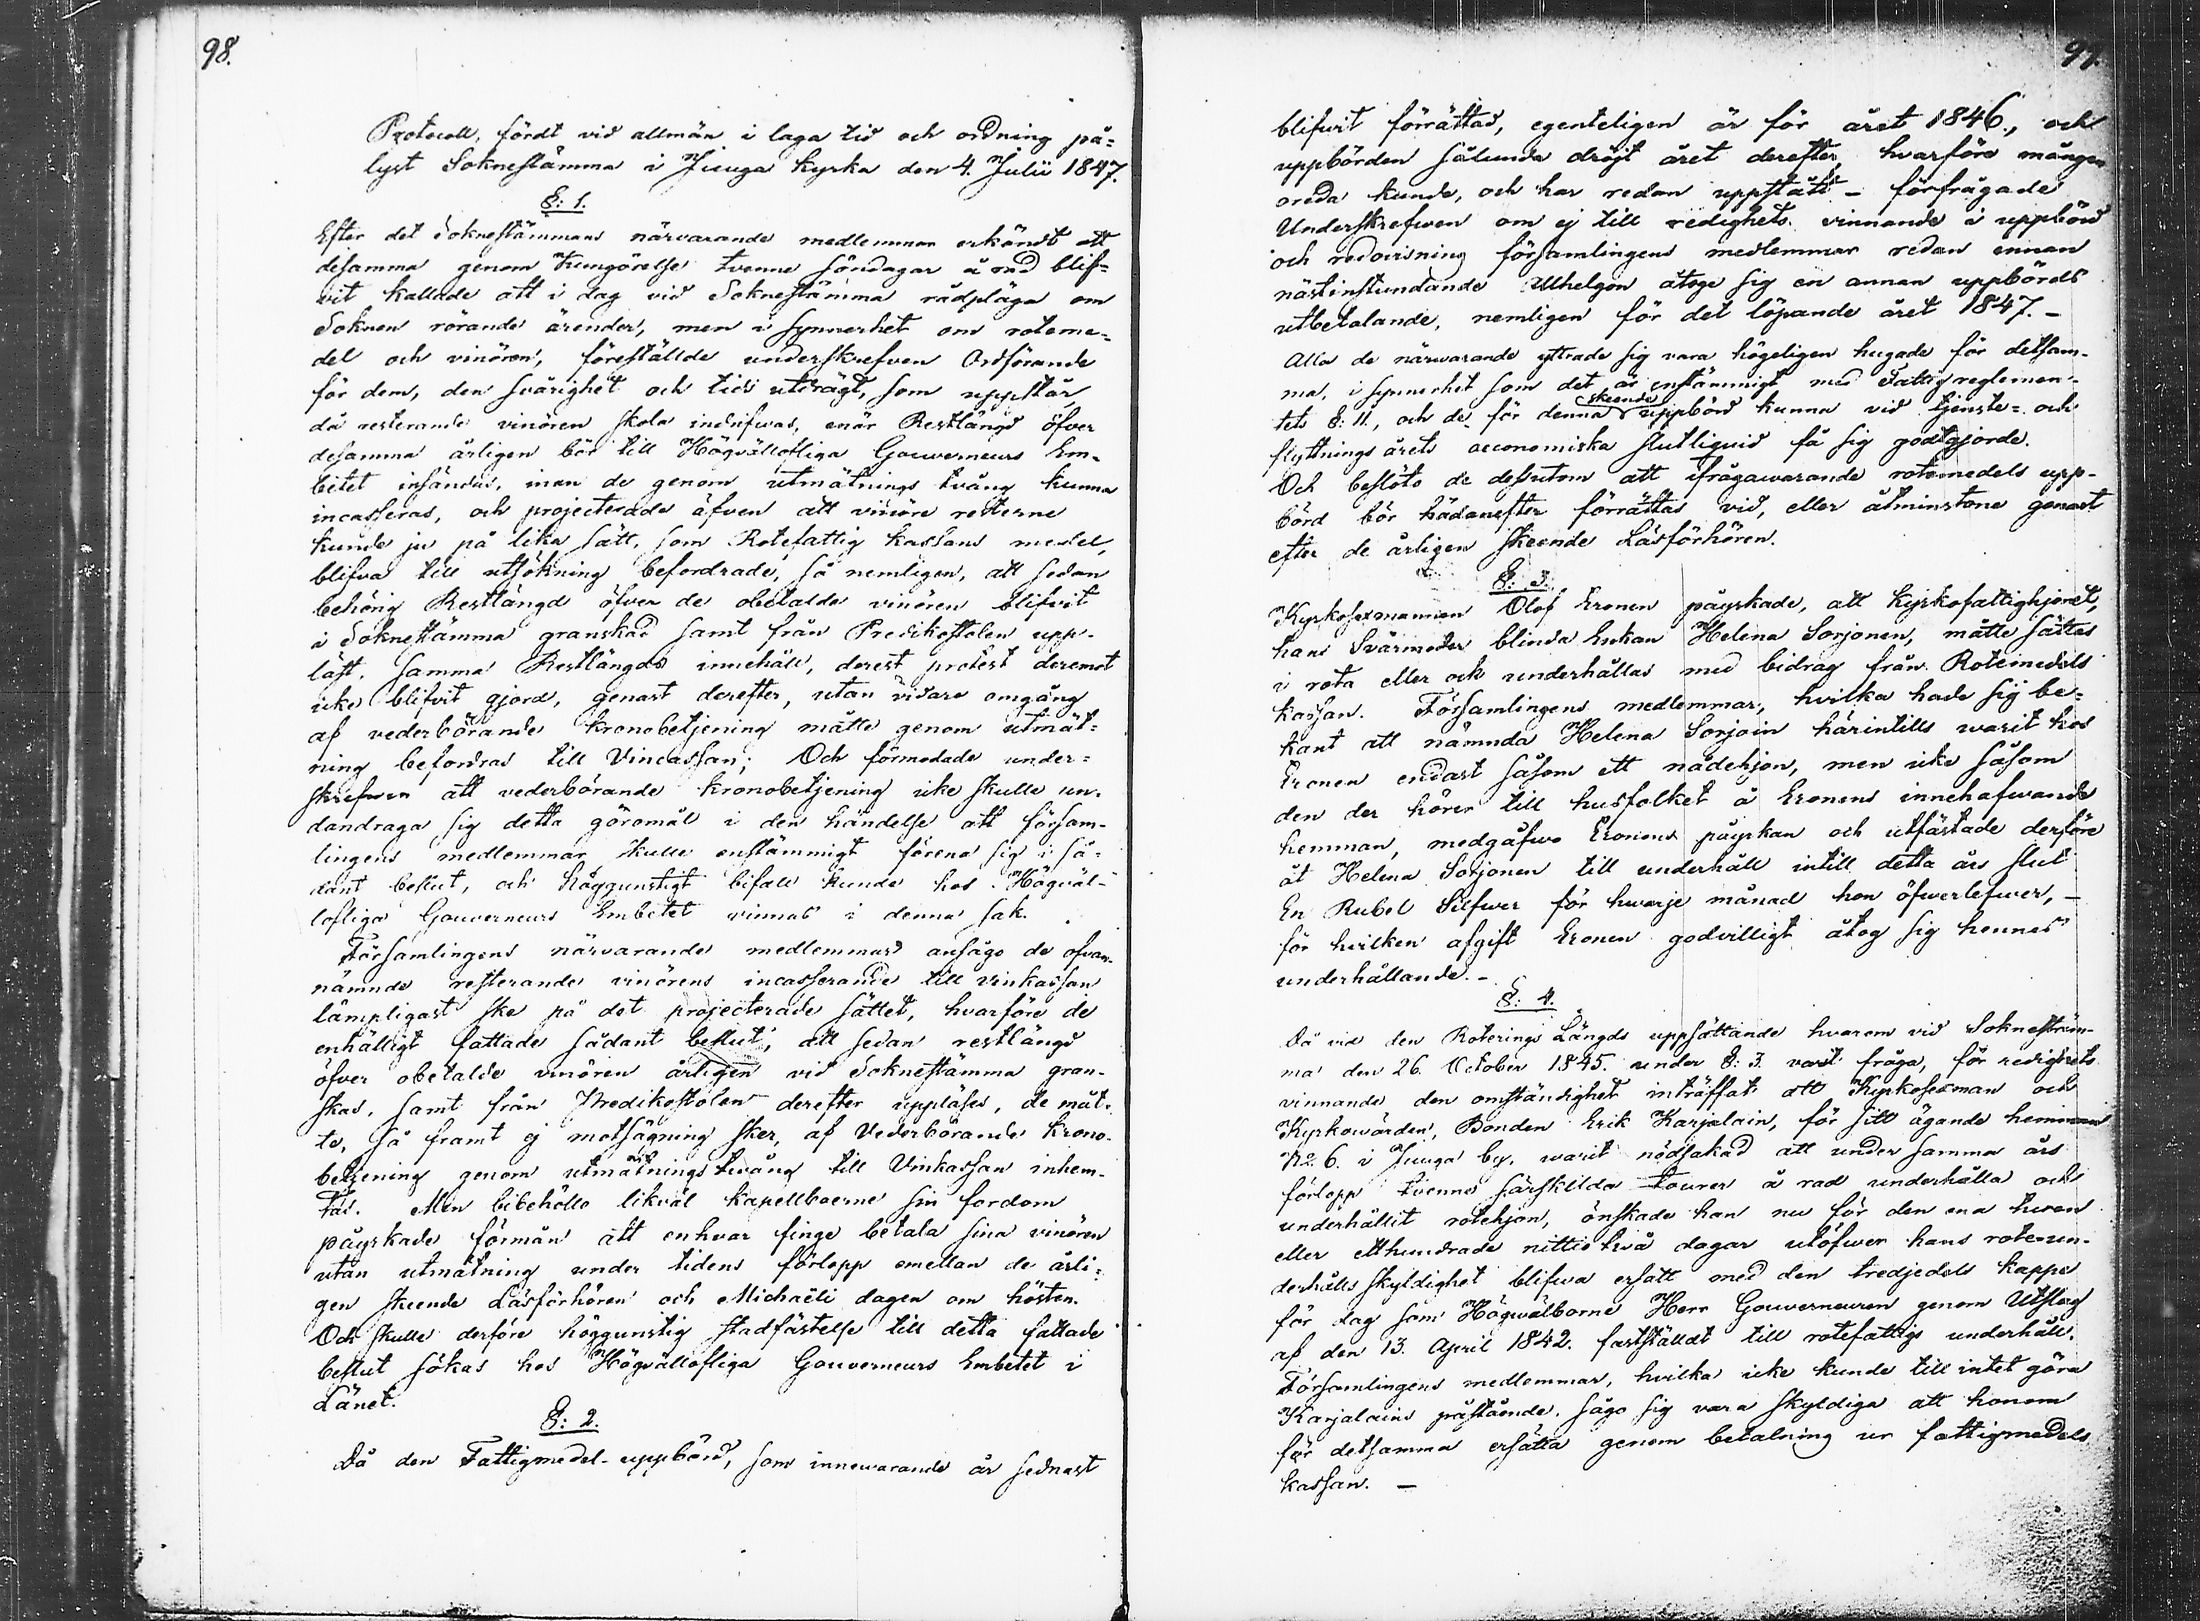 98.
Protocoll, fördt vid allmän i laga tid och ordning på=
lyst Soknestämma i Juuga Kyrka den 4. Julii 1847.
§: 1.
Efter det Soknestämmans närvarande medlemmar erkändt att
desamma genom Kungörelse tvenne söndagar å rad blif=
vit kallade att i dag vid Soknestämma rådpläga om
Soknen rörande ärender, men i synnerhet om roteme=
del och vinören, föreställde underskrefven Ordförande
för dem, den svårighet och tids utdrägt, som uppstår,
då resterande vinören skola indrifvas, enär Restlängd öfver
desamma årligen bör till Högvällofliga Gouverneurs Em=
betet insändas, innan de genom utmätnings tvång kunna
incasseras, och projecterade äfven att vinöre resterne
kunde ju på lika sätt, som Rotefattig kassans medel,
blifva till utsökning befordrade, så nemligen, att sedan
behörig Restlängd öfver de obetalda vinören blifvit
i Soknestämma granskad samt från Predikostolen upp=
läst, samma Restlängds innehåll, derest protest deremot
icke blifvit gjord, genast derefter, utan vidare omgång
af vederbörande kronobetjening måtte genom utmät=
ning befordras till Vincassan; Och förmodade under=
skrefven att vederbörande kronobetjening icke skulle un=
dandraga sig detta göromål i den händelse att försam=
lingens medlemmar skulle enstämmigt förena sig i så=
dant beslut, och höggunstigt bifall kunde hos Högväl=
lofliga Gouverneurs Embetet vinnas i denna sak.
Församlingens närvarande medlemmar ansågo de ofvan=
nämnde resterande vinörens incasserande till vinkassan
lämpligast ske på det projecterade sättet, hvarföre de
enhälligt fattade sådant beslut, att sedan restlängd
öfver obetalde vinören årligen vid Soknestämma gran=
skas, samt från Predikostolen derefter uppläses, de måt=
te, så framt ej motsägning sker, af Vederbörande krono=
betjening genom utmätnings tvång till Vinkassan inhem=
tas. Men bibehöllo likväl kapellboerne sin fordom
påyrkade förmån att enhvar finge betala sina vinören
utan utmätning under tidens förlopp emellan de årli=
gen skeende Läsförhören och Michaëli dagen om hösten.
Och skulle derföre höggunstig stadfästelse till detta fattade
beslut sökas hos Högvällofliga Gouverneurs Embetet i
Länet.
§: 2.
Då den Fattigmedel-uppbörd, som innewarande år sednast
blifvit förrättad, egenteligen är för året 1846., och
uppbörden sålunda dröjt året derefter, hvarföre mången
oreda kunde, och har redan uppstått – förfrågade
Underskrefven om ej till redighets vinnande i uppbörd
och redovisning församlingens medlemmar redan innan
nästinstundande Allhelgon åtoge sig en annan uppbörds
utbetalande, nemligen för det löpande året 1847. –
Alla de närwarande yttrade sig vara högeligen hugade för detsam=
ma, i synnerhet som det är enstämmigt med Fattigreglemen=
tets §: 11., och de för denna skeende uppbörd kunna vid tjenste= och
flyttnings årets oeconomiska slutliquid få sig godtgjorde.
Och beslöto de dessutom att ifrågawarande rotemedels upp=
börd bör hädanefter förrättas vid, eller åtminstone genast
efter de årligen skeende Läsförhören.
§: 3.
Kyrkosexmannen Olof Eronen påyrkade, att kyrkofattighjonet,
hans Svärmoder blinda Enkan Helena Sorjonen, måtte sättas
i rota eller ock underhållas med bidrag från Rotemedels
kassan. Församlingens medlemmar, hvilka hade sig be=
kant att nämnda Helena Sorjoin härintills warit hos
Eronen endast såsom ett nådehjon, men icke såsom
den der hörer till husfolket å Eronens innehafwande
hemman, medgåfwo Eronens påyrkan och utfästade derföre
åt Helena Sorjonen till underhåll intill detta års slut
En Rubel Silfwer för hwarje månad hon öfwerlefwer, –
för hvilken afgift Eronen godvilligt åtog sig hennes
underhållande. –
§: 4.
Då vid den Roterings Längds uppsättande hvarom vid Soknestäm=
ma den 26. October 1845. under §: 3. varit fråga, för redighets
vinnande den omständighet inträffat att Kyrkosexman och
Kyrkowärden, Bonden Erik Karjalain, för sitt ägande hemman
No. 6. i Juuga by, warit nödsakad att under samma års
förlopp tvenne särskilda tourer å rad underhålla och
underhållit rotehjon, önskade han nu för den ena turen
eller etthundrade nittio två dagar utöfwer hans rote-un=
derhålls skyldighet blifwa ersatt med den tredjedels kappe
för dag som Högwälborne Herr Gouverneuren genom Utslag
af den 13. April 1842. fastställdt till rotefattigs underhåll.
Församlingens medlemmar, hvilka icke kunde till intet göra
Karjalains påstående, sågo sig vara skyldiga att honom
för detsamma ersätta genom betalning ur fattigmedels
kassan. –